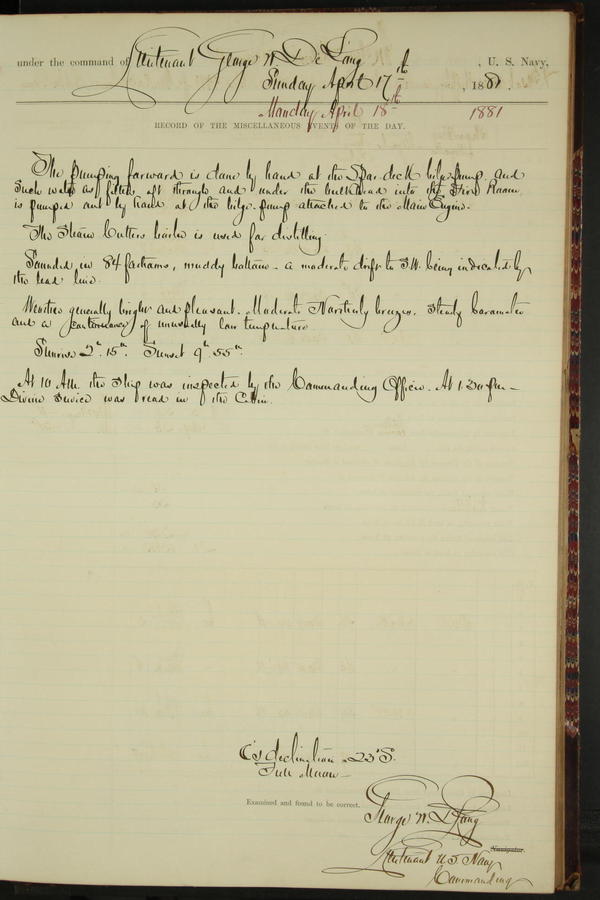 under the command of Lieutenant George W. De Long , U. S. Navy,
Sunday April 17th , 1881 .
Monday April 18th 1881
RECORD OF THE MISCELLANEOUS EVENTS OF THE DAY.
The pumping forward is done by hand at the Spar deck bilge pump, and
such water as filters aft through and under the bulkhead into the Fire Room
is pumped out by hand at the bilge pump attached to the Main Engine.
The Steam Cutters boiler is used for distilling.
Sounded in 84 fathoms, muddy bottom - a moderate drift to S.W. being indicated by
the lead line.
Weather generally bright and pleasant. Moderate Northerly breezes. Steady barometer
and a continuance of unusually low temperature
Sunrise 2h. 15m. Sunset 9h. 55m.
At 10 AM. the Ship was inspected by the Commanding Officer. At 1.30 pm -
Divine Service was read in the Cabin.
declination 23° S.
Full Moon -
Examined and found to be correct.
George W. De Long
Navigator.
Lieutenant U.S. Navy
Commanding